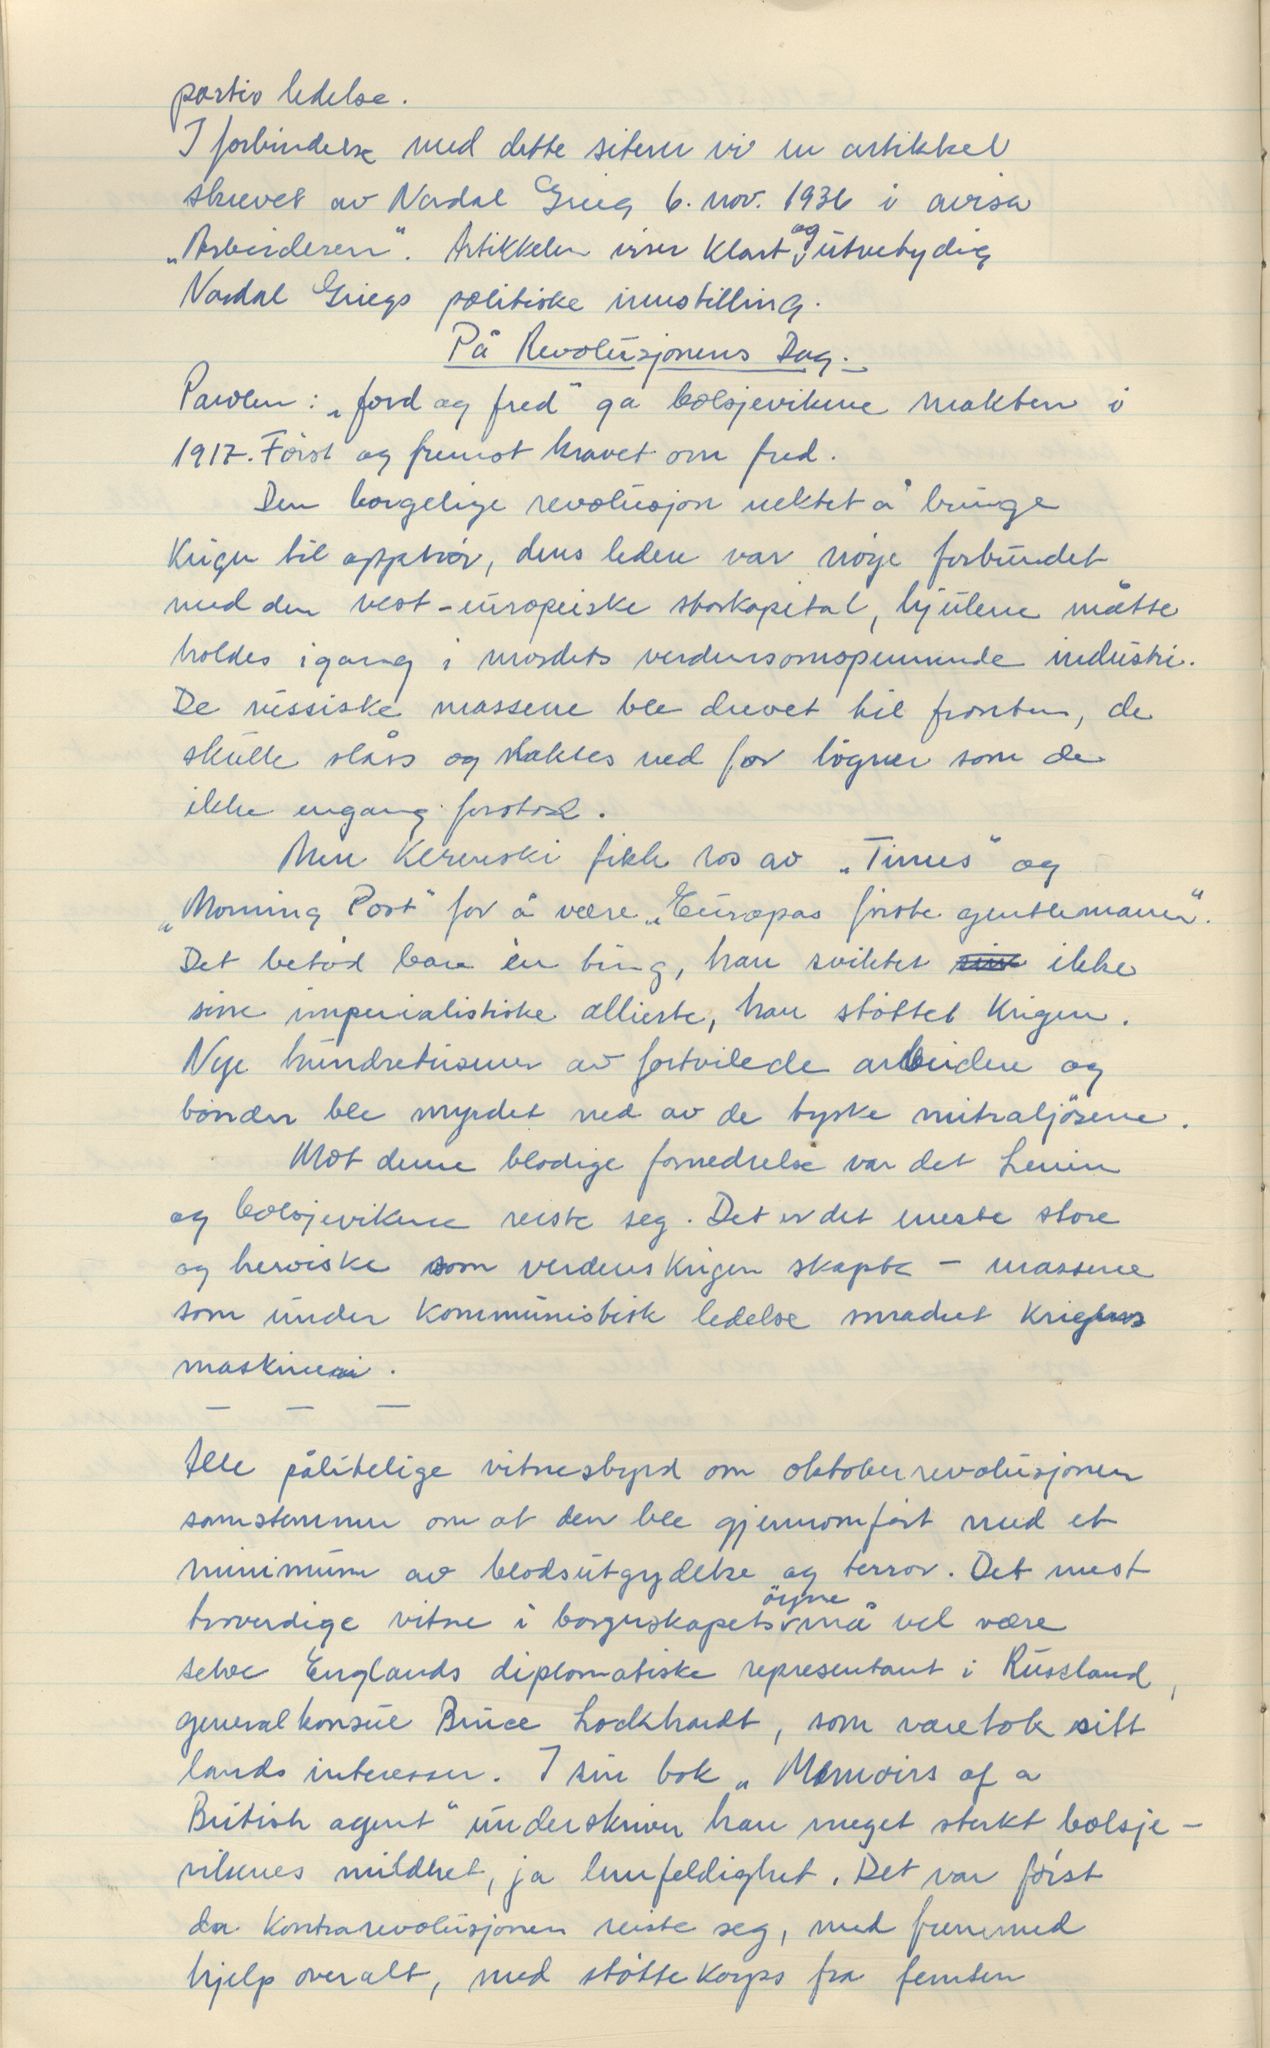 partis ledelse.
I forbindelse med dette siterer vi en artikkel
skrevet av Nordal Grieg 6. nov. 1936 i avisa
„Arbeideren“. Artikkelen viser klart og utvetydig
Nordal Griegs politiske innstilling.
På Revolusjonens Dag.
Parolen: „jord og fred“ ga bolsjevikene makten i
1917. Først og fremst kravet om fred.
Den borgelige revolusjon nektet å bringe
krigen til opphør, dens ledere var nøye forbundet
med den vest-europeiske storkapital, hjulene måtte
holdes igang i mordets verdensomspennende industri.
De russiske massene ble drevet til fronten, de
skulle slåss og slaktes ned for løgner som de
ikke engang forstod.
Men Kerenski fikk ros av „Times“ og
„Morning Post“ for å være „Europas første gentlemann“.
Det betød bare èn ting, han sviktet ikke
sine imperialistiske allierte, han støttet krigen.
Nye hundretusener av fortvilede arbeidere og
bønder ble myrdet ned av de tyske mitraljøsene.
Mot denne blodige fornedrelse var det Lenin
og bolsjevikene reiste seg. Det er det eneste store
og heroiske som verdenskrigen skapte – massene
som under kommunistisk ledelse smadret krigens
maskineri.
— — —
Alle pålitelige vitnesbyrd om oktoberrevolusjonen
samstemmer om at den ble gjennomført med et
minimum av blodsutgydelse og terror. Det mest
troverdige vitne i borgerskapets øyne må vel være
selve Englands diplomatiske representant i Russland,
generalkonsul Bruce Lockhardt, som varetok sitt
lands interesser. I sin bok „Memoirs of a
British agent“ underskriver han meget sterkt bolsje-
vikenes mildhet, ja lunfeldighet. Det var først
da kontrarevolusjonen reiste seg, med fremmed
hjelp overalt, med støttekorps fra femten